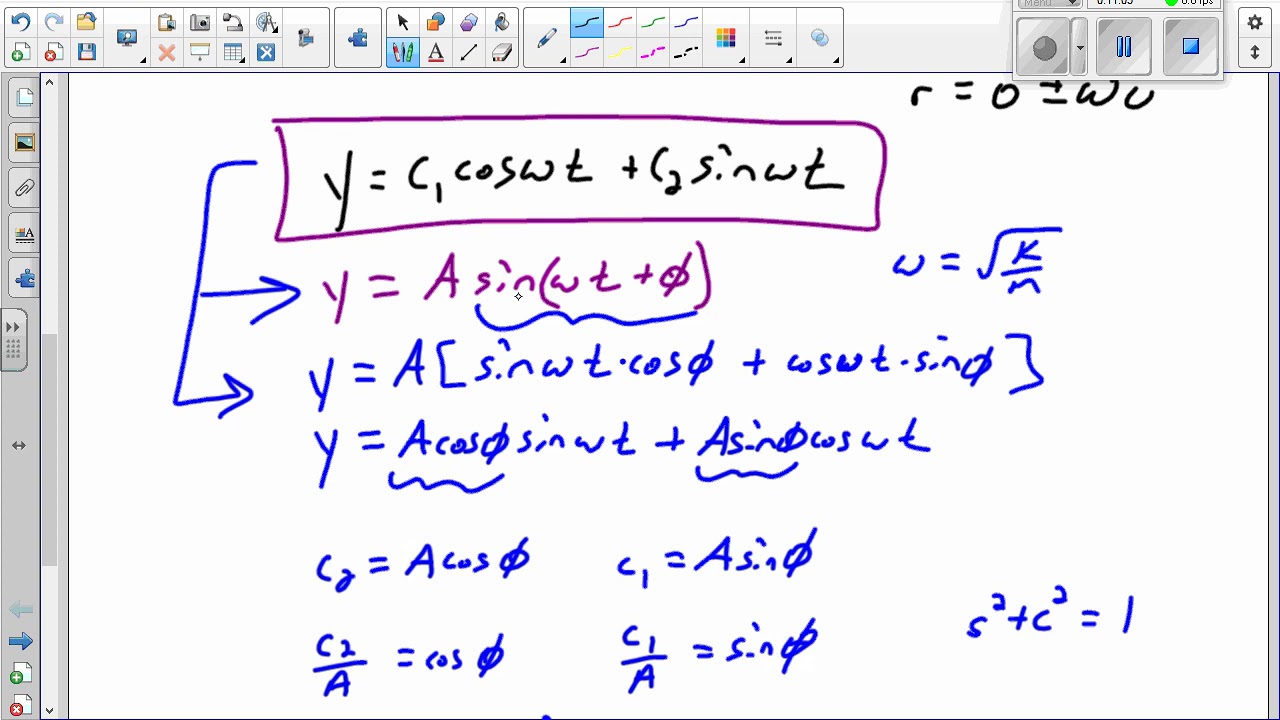 Menu
r = 0 ± ωi
y = C₁cosωt + C₂sinωt
y = A sin(ωt + ϕ)
ω = √(K/m)
y = A[sinωt·cosϕ + cosωt·sinϕ]
y = Acosϕsinωt + Asinϕcosωt
c₂ = Acosϕ c₁ = Asinϕ
s² + c² = 1
c₂/A = cosϕ c₁/A = sinϕ